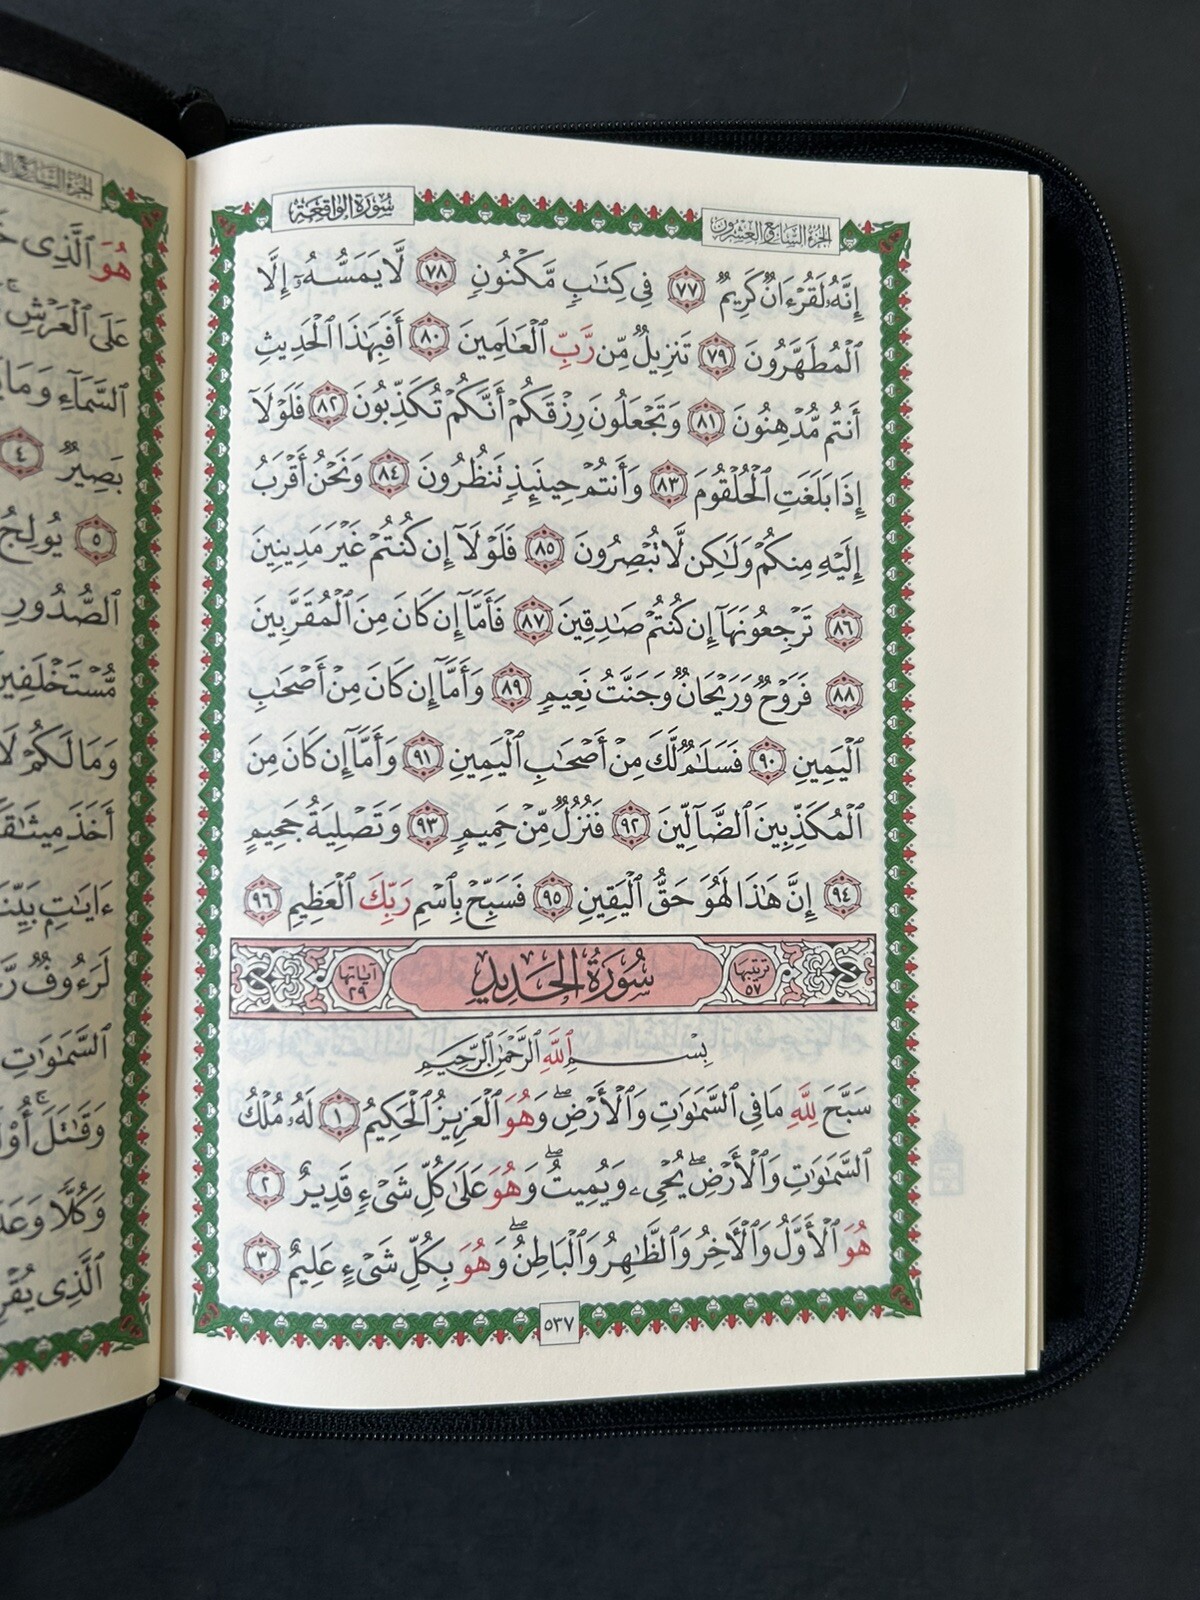 الجزء السابع والعشرون
سورة الواقعة
إِنَّهُۥ لَقُرْءَانٌ كَرِيمٌ ٧٧ فِى كِتَٰبٍ مَّكْنُونٍ ٧٨ لَّا يَمَسُّهُۥٓ إِلَّا
ٱلْمُطَهَّرُونَ ٧٩ تَنزِيلٌ مِّن رَّبِّ ٱلْعَٰلَمِينَ ٨٠ أَفَبِهَٰذَا ٱلْحَدِيثِ
أَنتُم مُّدْهِنُونَ ٨١ وَتَجْعَلُونَ رِزْقَكُمْ أَنَّكُمْ تُكَذِّبُونَ ٨٢ فَلَوْلَآ
إِذَا بَلَغَتِ ٱلْحُلْقُومَ ٨٣ وَأَنتُمْ حِينَئِذٍ تَنظُرُونَ ٨٤ وَنَحْنُ أَقْرَبُ
إِلَيْهِ مِنكُمْ وَلَٰكِن لَّا تُبْصِرُونَ ٨٥ فَلَوْلَآ إِن كُنتُمْ غَيْرَ مَدِينِينَ
٨٦ تَرْجِعُونَهَآ إِن كُنتُمْ صَٰدِقِينَ ٨٧ فَأَمَّآ إِن كَانَ مِنَ ٱلْمُقَرَّبِينَ
٨٨ فَرَوْحٌ وَرَيْحَانٌ وَجَنَّتُ نَعِيمٍ ٨٩ وَأَمَّآ إِن كَانَ مِنْ أَصْحَٰبِ
ٱلْيَمِينِ ٩٠ فَسَلَٰمٌ لَّكَ مِنْ أَصْحَٰبِ ٱلْيَمِينِ ٩١ وَأَمَّآ إِن كَانَ مِنَ
ٱلْمُكَذِّبِينَ ٱلضَّآلِّينَ ٩٢ فَنُزُلٌ مِّنْ حَمِيمٍ ٩٣ وَتَصْلِيَةُ جَحِيمٍ
٩٤ إِنَّ هَٰذَا لَهُوَ حَقُّ ٱلْيَقِينِ ٩٥ فَسَبِّحْ بِٱسْمِ رَبِّكَ ٱلْعَظِيمِ ٩٦
ترتيبها ٥٧ سُورَةُ الحَدِيدِ آياتها ٢٩
بِسْمِ ٱللَّهِ ٱلرَّحْمَٰنِ ٱلرَّحِيمِ
سَبَّحَ لِلَّهِ مَا فِى ٱلسَّمَٰوَٰتِ وَٱلْأَرْضِۖ وَهُوَ ٱلْعَزِيزُ ٱلْحَكِيمُ ١ لَهُۥ مُلْكُ
ٱلسَّمَٰوَٰتِ وَٱلْأَرْضِۖ يُحْىِۦ وَيُمِيتُۖ وَهُوَ عَلَىٰ كُلِّ شَىْءٍ قَدِيرٌ ٢
هُوَ ٱلْأَوَّلُ وَٱلْءَاخِرُ وَٱلظَّٰهِرُ وَٱلْبَاطِنُۖ وَهُوَ بِكُلِّ شَىْءٍ عَلِيمٌ ٣
٥٣٧
هُوَ ٱلَّذِى
عَلَى ٱلْعَرْشِۚ
ٱلسَّمَآءِ وَمَا
بَصِيرٌ ٤
٥ يُولِجُ
ٱلصُّدُورِ
مُّسْتَخْلَفِينَ
وَمَا لَكُمْ لَا
أَخَذَ مِيثَٰقَ
ءَايَٰتٍۭ بَيِّنَ
لَرَءُوفٌ
ٱلسَّمَٰوَٰتِ
وَقَٰتَلَۚ
وَكُلًّا
ٱلَّذِى